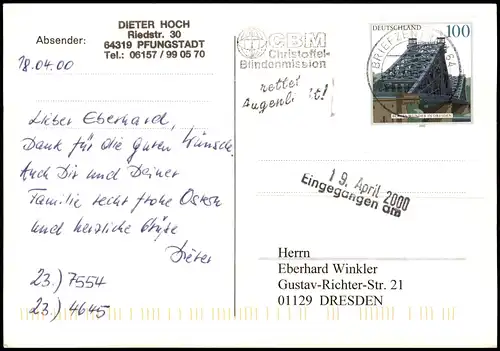 DIETER HOCH
Riedstr. 30
Absender: 64319 PFUNGSTADT
Tel.: 06157 / 99 05 70
18.04.00
CBM
Christoffel-
Blindenmission
rettet
Augenlicht!
DEUTSCHLAND 100
BRIEFZENTRUM 64
BLAUES WUNDER IN DRESDEN
Lieber Eberhard,
Dank für die guten Wünsche.
Auch Dir und Deiner
Familie recht frohe Ostern
und herzliche Grüße
Dieter
23.) 7554
23.) 4645
19. April 2000
Eingegangen am
Herrn
Eberhard Winkler
Gustav-Richter-Str. 21
01129 DRESDEN